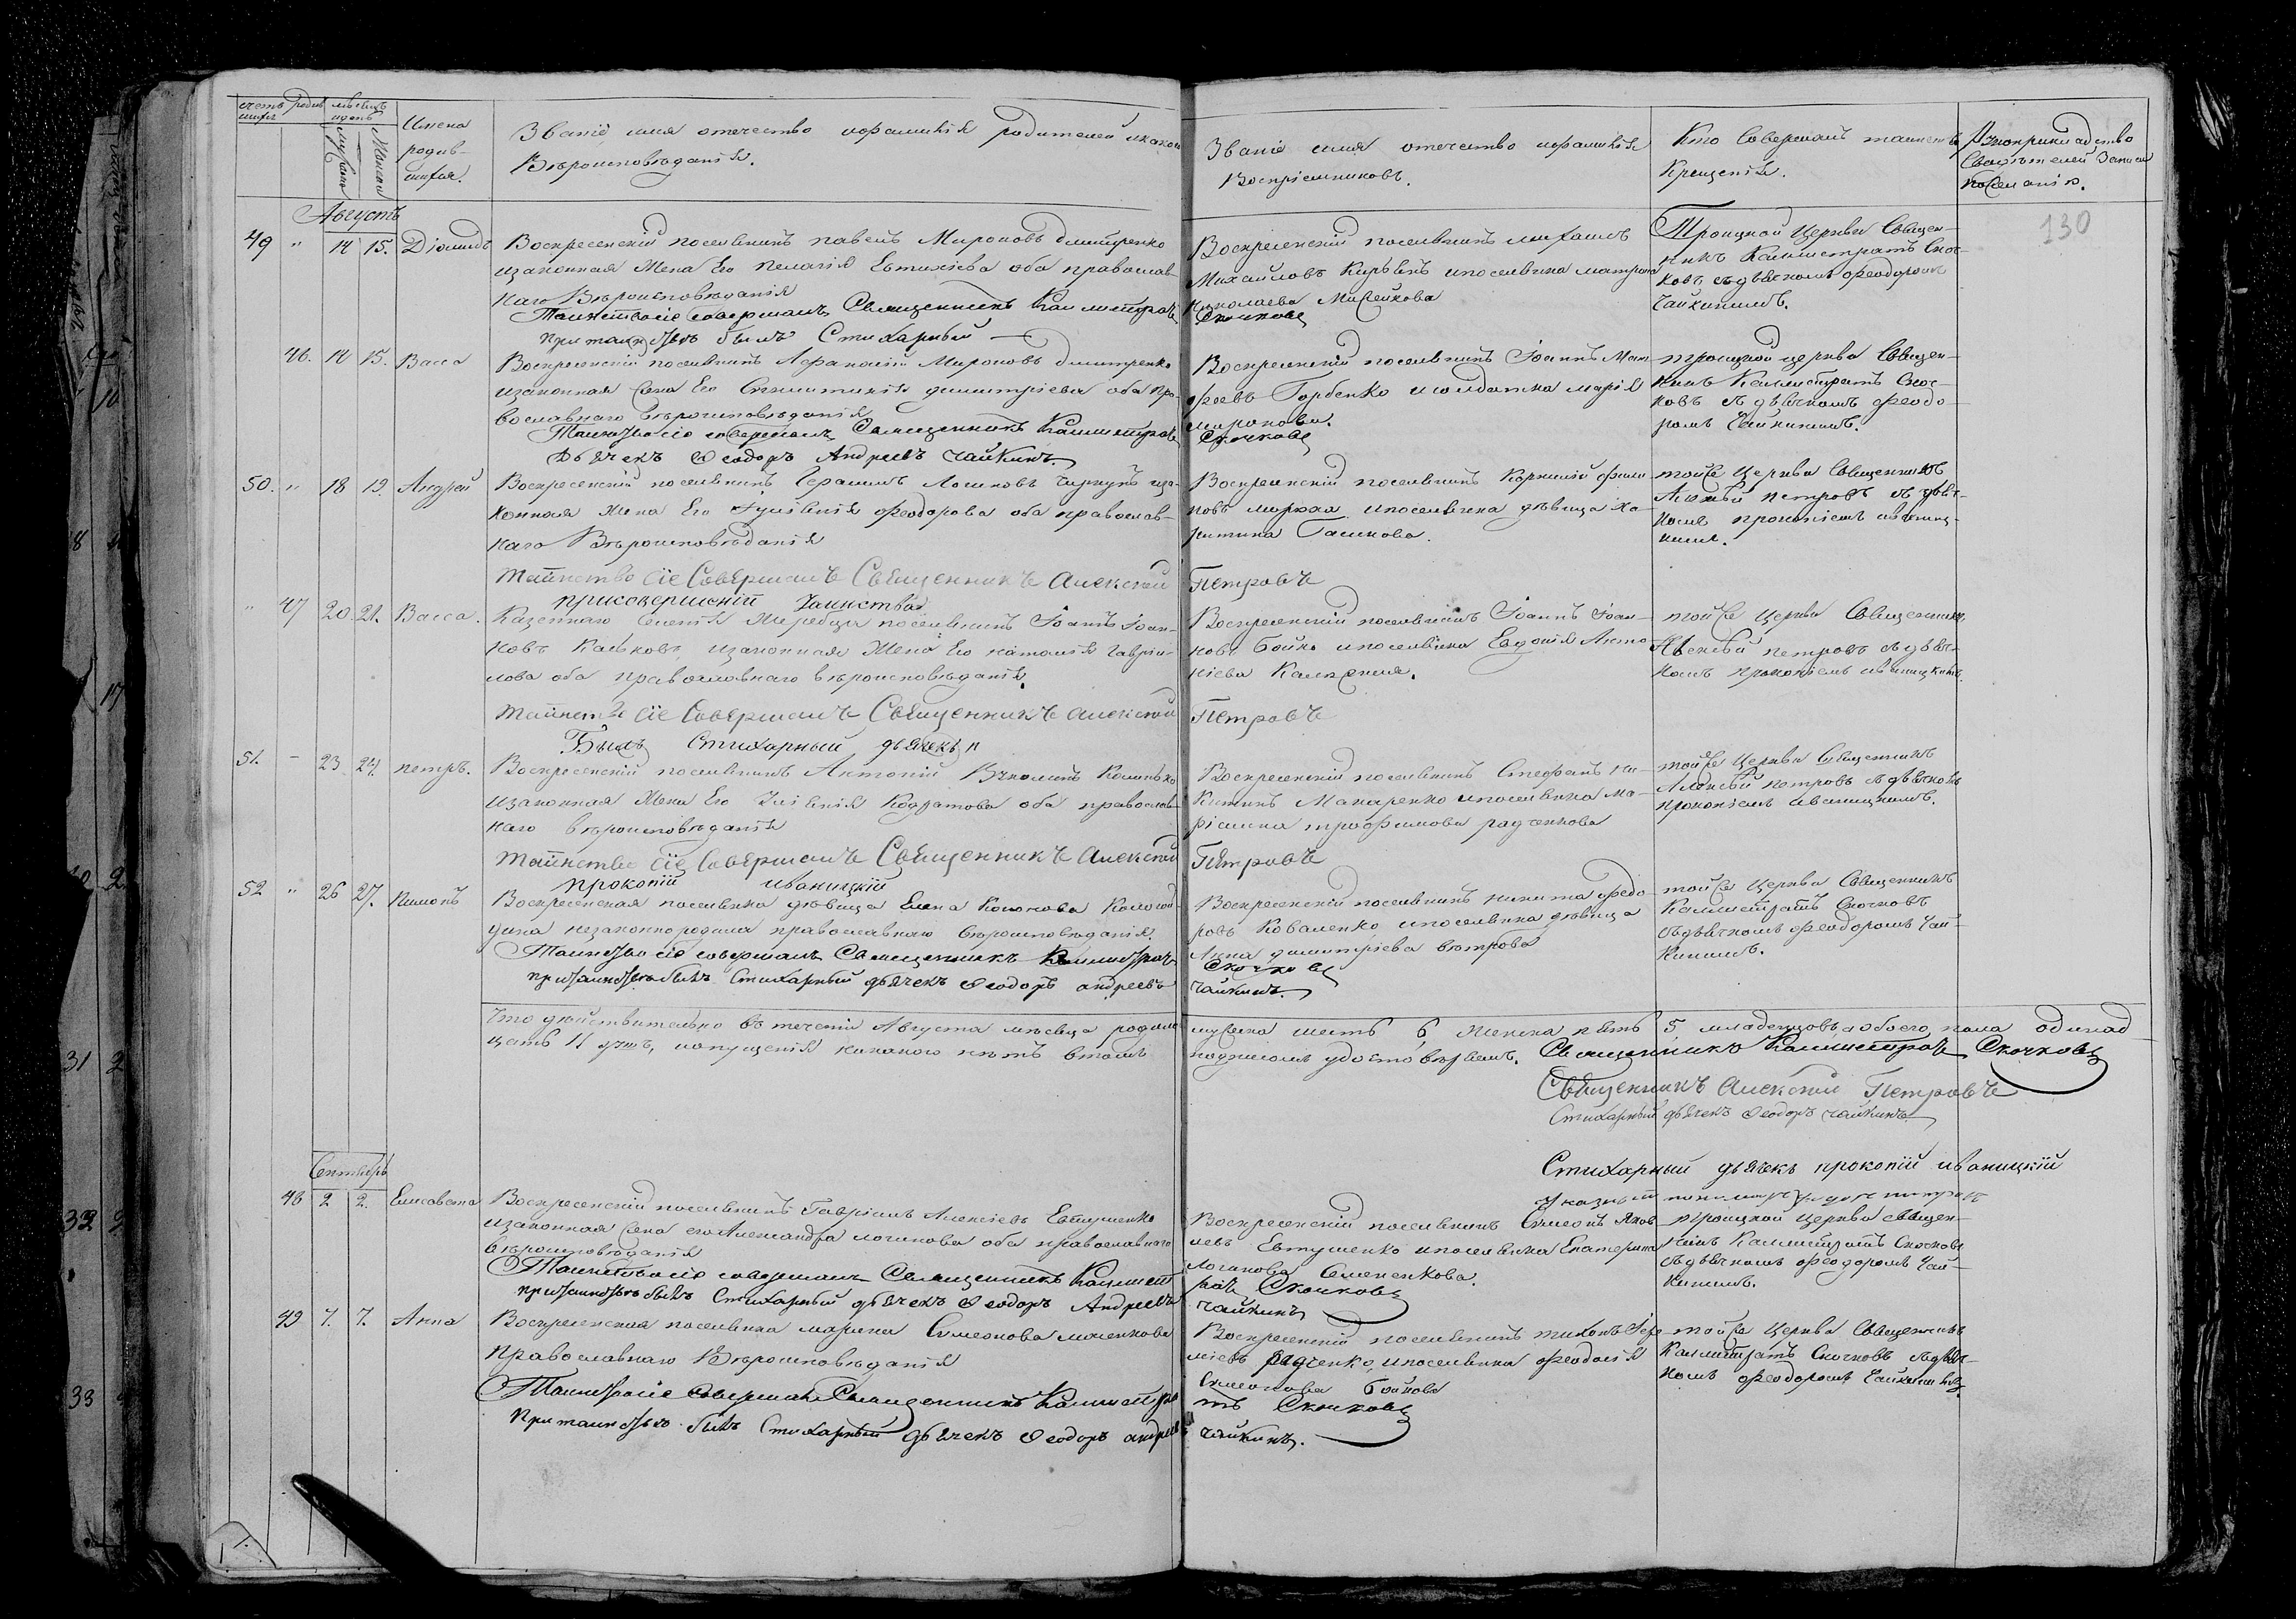 счетъ родив
шихся
мѣсяцъ
и день
Имена
родив-
шихся.
Званіе имя отечество и фамилія родителей и какого
Вѣроисповѣданія.
Званіе имя отечество и фамилія
Воспріемниковъ.
Кто Совершалъ таинство
Крещенія.
Рукоприкладство
Свидѣтелей Записи
по желанію.
130
Августъ
49 " 14 15. Діомидъ
Воскресенскій поселянинъ павелъ Мироновъ дмитренко
и законная Жена Его пелагія Евтихіева оба православ
наго Вѣроисповѣданія
Таинство сіе совершалъ Священникъ Каллистратъ
при таинствѣ былъ Стихарный
Воскресенскій поселянинъ михаилъ
Михайловъ Кирѣевъ и поселянка матрона
Николаева
Скочковъ
Троицкой Церкви Священ-
никъ Каллистратъ Скоч-
ковъ съ дьячкомъ феодоромъ
Чайкинымъ.
46. 14 15. Васса
Воскресенскій поселянинъ Афанасій Мироновъ дмитренко
и законная Жена Его димитріева оба пра-
вославнаго вѣроисповѣданія
Таинство сіе совершалъ Священникъ Каллистратъ
Дьячекъ Ѳеодоръ Андреевъ Чайкинъ.
Воскресенскій поселянинъ Іоаннъ Мат-
феевъ Горбенко и солдатка марія
миронова.
Скочковъ
троицкой церкви Священ-
никъ Каллистратъ Скоч-
ковъ съ дьячкомъ феодо-
ромъ Чайкинымъ.
50. " 18 19. Андрей
Воскресенскій поселянинъ Герасимъ Логиновъ и за-
конная Жена Его Іуліанія феодорова оба православ-
наго Вѣроисповѣданія
таинство сіе Совершалъ Священникъ Алексѣй
прокопій Иваницкій
Воскресенскій поселянинъ Корнилій фили
повъ и поселянка дѣвица Ха-
ритина
Петровъ
той же Церкви Священникъ
Алексѣй петровъ съ дьяч-
комъ прокопіемъ иваниц-
кимъ.
" 47 20. 21. Васса.
Казеннаго Селенія поселянинъ Іоаннъ Іоан-
новъ и законная Жена Его наталія Гаврии-
лова оба православнаго вѣроисповѣданія.
таинство сіе Совершалъ Священникъ Алексѣй
Былъ Стихарный дьячекъ п
Воскресенскій поселянинъ Іоаннъ Іоан-
новъ Бойко и поселянка Евдокія Анто-
ніева
Петровъ
той же Церкви Священникъ
Алексѣй петровъ съ дьяч-
комъ прокопіемъ иваницкимъ.
51. - 23. 24. петръ.
Воскресенскій поселянинъ Антоній
и законная Жена Его Кодратова оба православ-
наго вѣроисповѣданія
таинство сіе Совершалъ Священникъ Алексѣй
прокопій иваницкій
Воскресенскій поселянинъ Стефанъ Ни-
китинъ Макаренко и поселянка Ма-
ріамна трофимова радченкова
Петровъ
той же Церкви Священникъ
Алексѣй петровъ съ дьячкомъ
прокопіемъ иваницкимъ.
52 " 26 27. Пименъ
Воскресенская поселянка дѣвица Елена Кононова
незаконнородила православнаго вѣроисповѣданія.
Таинство сіе совершалъ Священникъ Каллистратъ
при таинствѣ былъ Стихарный дьячекъ Ѳеодоръ андреевъ
Воскресенскій поселянинъ никита федо
ровъ Коваленко и поселянка дѣвица
Анна димитріева вѣтрова
Скочковъ
чайкинъ.
той же Церкви Священникъ
Каллистратъ Скочковъ
съ дьячкомъ феодоромъ Чай-
кинымъ.
что дѣйствительно въ теченіи Августа мѣсяца родилось мужеска шесть 6 женска пять 5 младенцовъ а обоего пола одинад
цать 11 душъ, и опущенія никакого нѣтъ въ томъ подписомъ удостовѣряемъ. Священникъ Каллистратъ Скочковъ
Священникъ Алексѣй Петровъ
Стихарный дьячекъ Ѳеодоръ чайкинъ
Стихарный дьячекъ прокопій иваницкій
Указный пономарь
Сентябрь
48 2 2. Елисавета
Воскресенскій поселянинъ Гавріилъ Алексіевъ Евтушенко
и законная Жена его Александра логинова оба православнаго
вѣроисповѣданія
Таинство сіе совершалъ Священникъ Каллист
при таинствѣ былъ Стихарный дьячекъ Ѳеодоръ Андреевъ
Воскресенскій поселянинъ Симеонъ Яков
левъ Евтушенко и поселянка Екатерина
логинова Семененкова.
ратъ Скочковъ
чайкинъ
троицкой Церкви священ-
никъ Каллистратъ Скочковъ
съ дьячкомъ феодоромъ Чай-
кинымъ.
49 7. 7. Анна
Воскресенская поселянка марина Симеонова
Православнаго Вѣроисповѣданія
Таинство сіе Совершалъ Священникъ Каллистра
При таинствѣ былъ Стихарный дьячекъ Ѳеодоръ андреевъ
Воскресенскій поселянинъ тихонъ
радченко и поселянка феодосія
Симеонова Бойкова
тъ Скочковъ
чайкинъ.
той же Церкви Священникъ
Каллистратъ Скочковъ съ дьяч-
комъ феодоромъ Чайкинымъ.